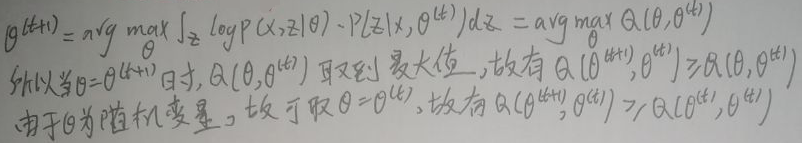 θ^(t+1) = arg max_θ ∫_z log P(x,z|θ) · P(z|x,θ^(t)) dz = arg max_θ Q(θ,θ^(t))
所以当θ=θ^(t+1)时,Q(θ,θ^(t))取到最大值,故有 Q(θ^(t+1),θ^(t)) ≥ Q(θ,θ^(t))
由于θ为随机变量。故可取θ=θ^(t),故有 Q(θ^(t+1),θ^(t)) ≥ Q(θ^(t),θ^(t))